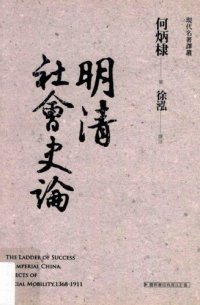 現代名著譯叢
何炳棣
著
徐泓
譯注
明清
社會史論
THE LADDER OF SUCCESS
IMPERIAL CHINA:
ECTS OF
CIAL MOBILITY, 1368-1911